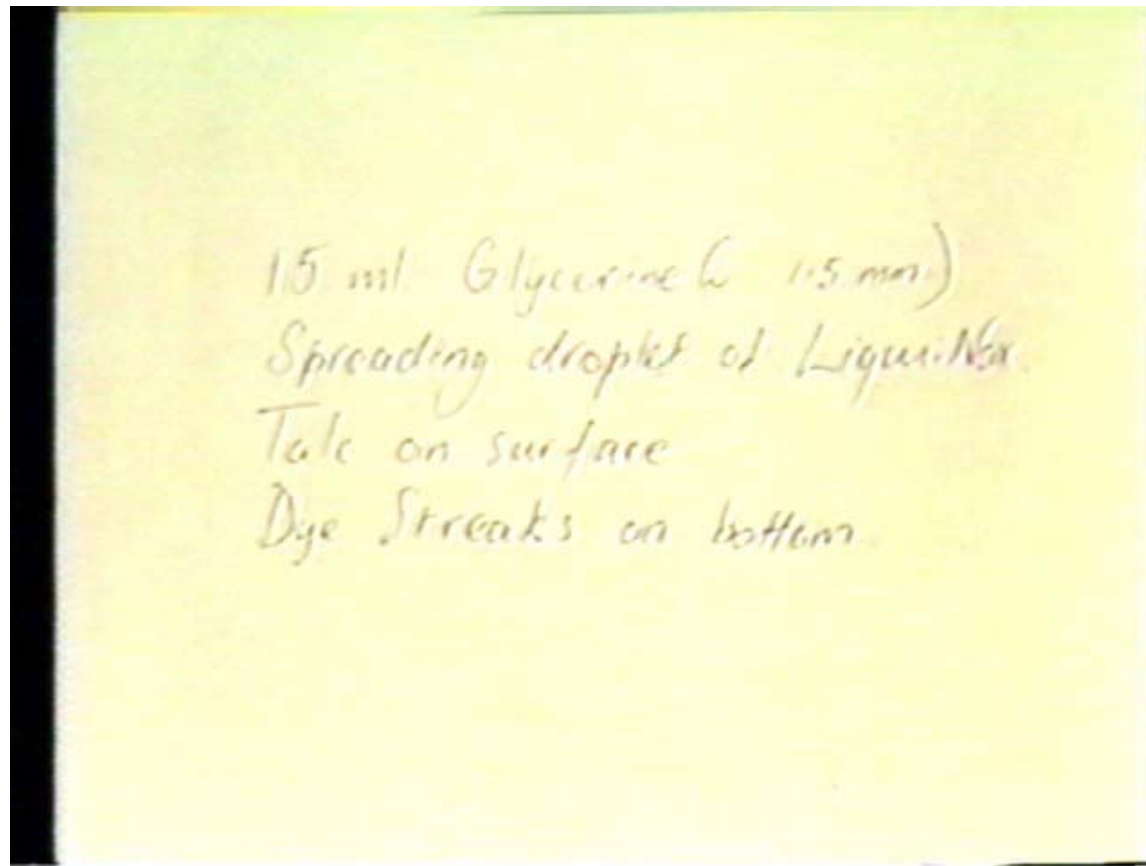 15 ml Glycerine (~ 1.5 mm)
Spreading droplet of LiquiNox.
Talc on surface
Dye Streaks on bottom.